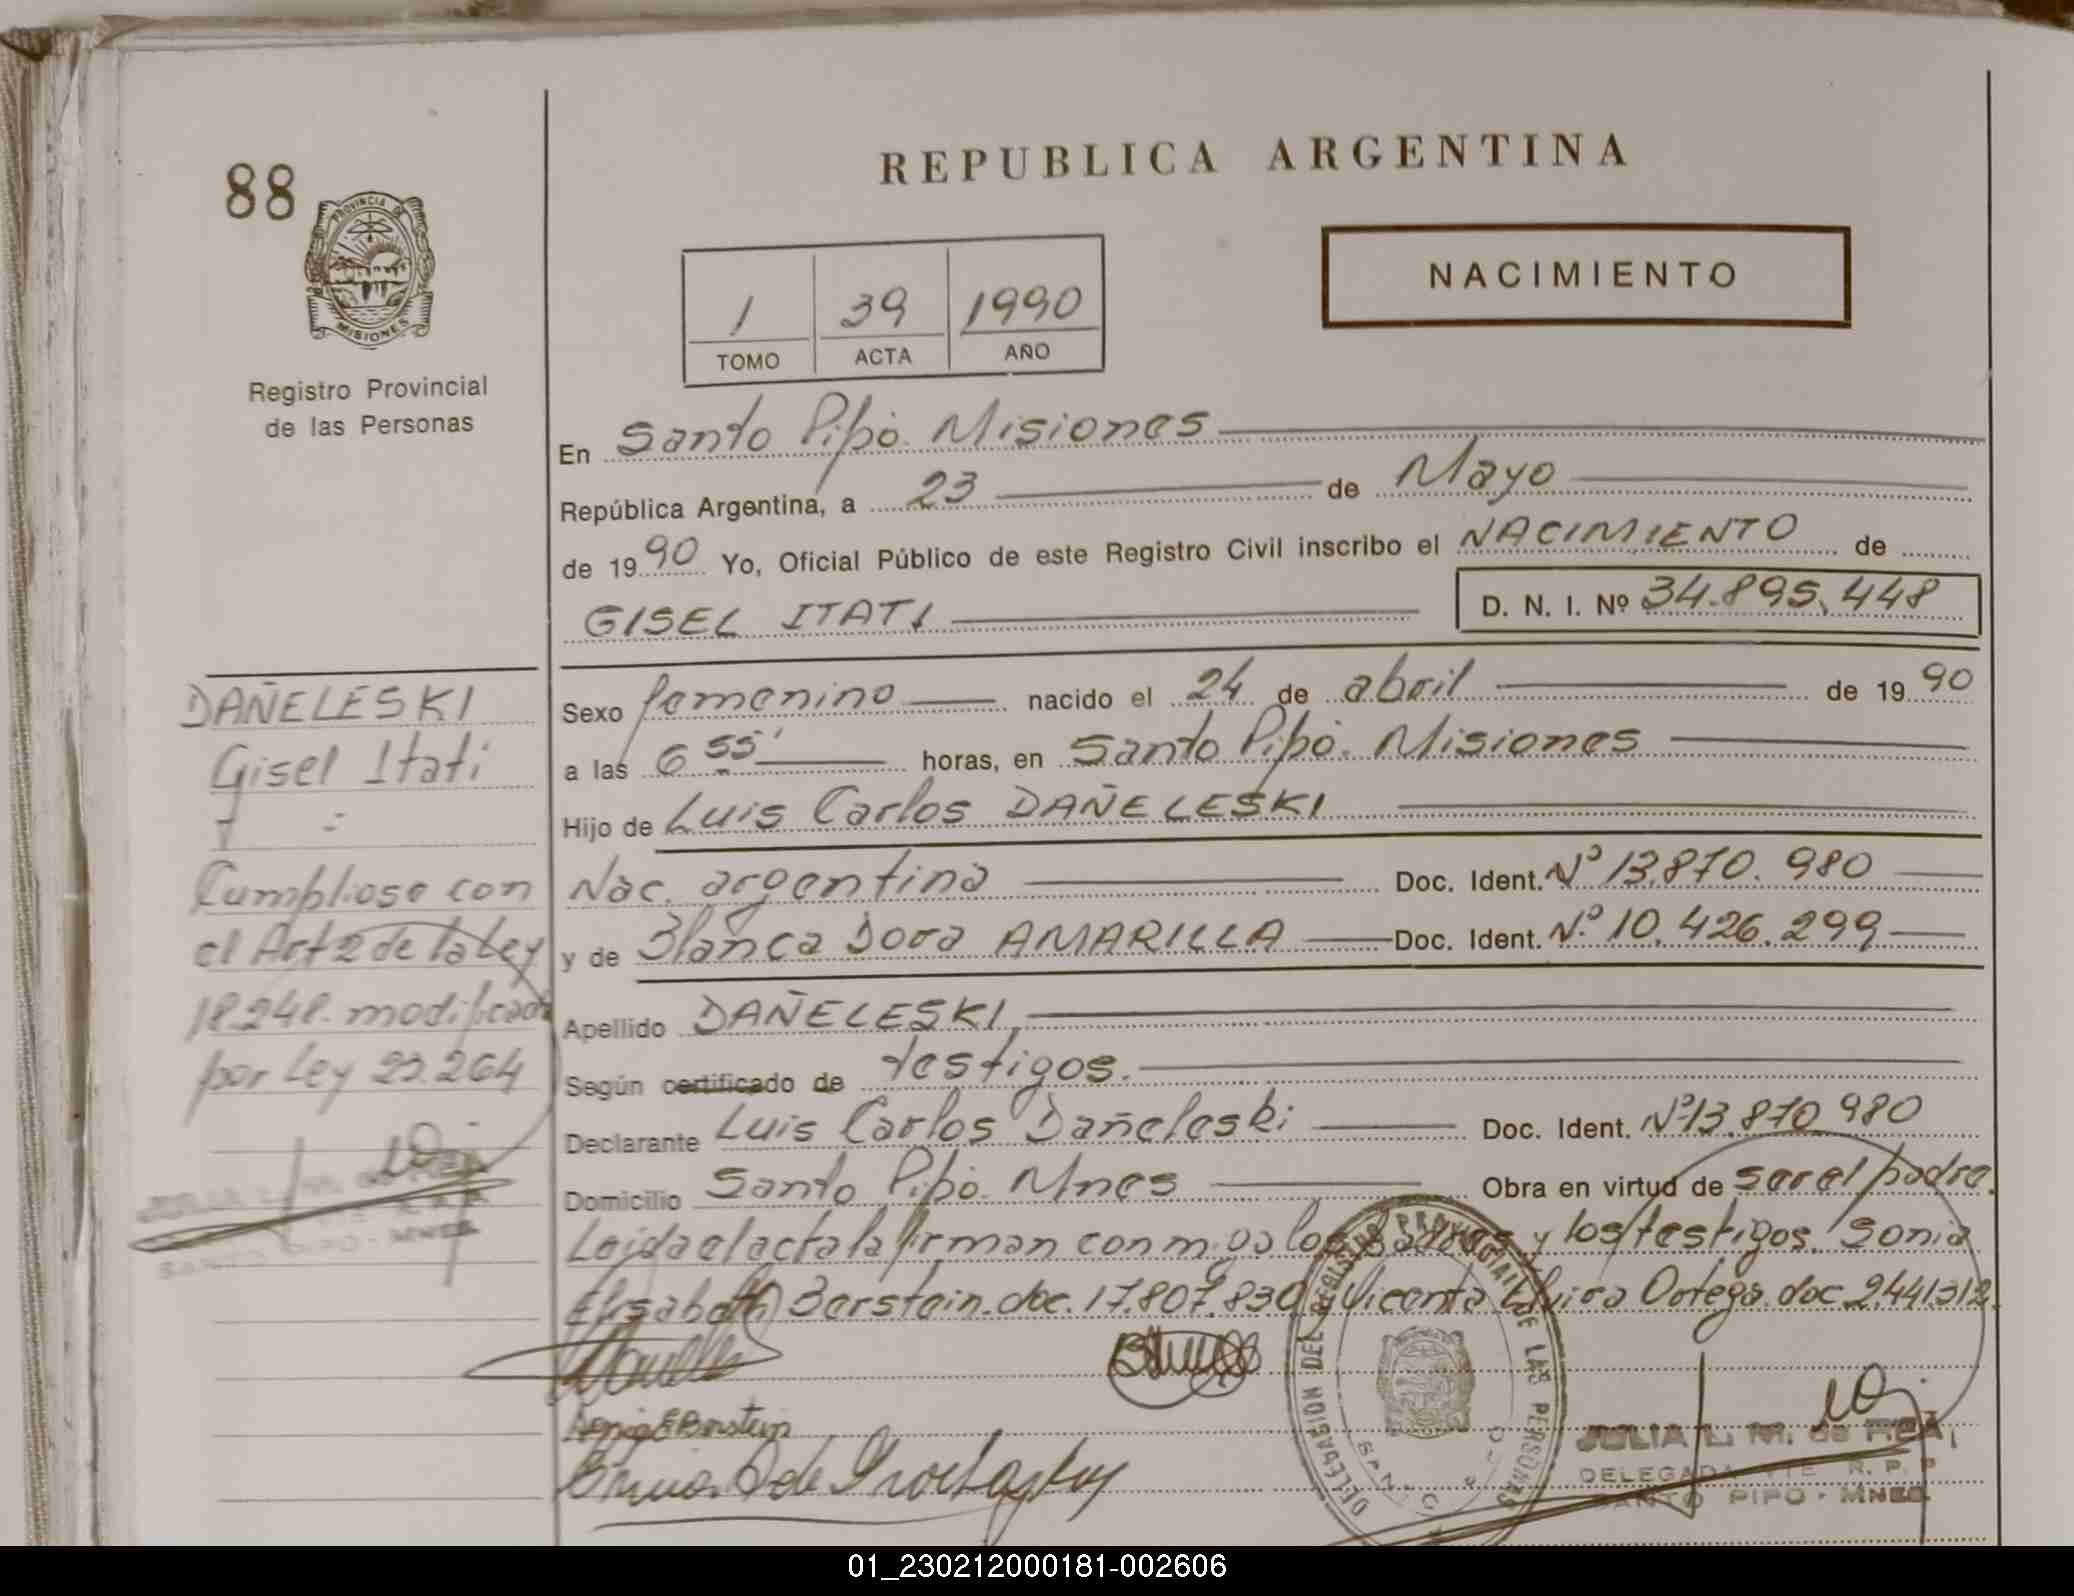 88
PROVINCIA DE
MISIONES
Registro Provincial
de las Personas
REPUBLICA ARGENTINA
NACIMIENTO
1 39 1990
TOMO ACTA AÑO
En Santo Pipó. Misiones
República Argentina, a 23 de Mayo
de 1990 Yo, Oficial Público de este Registro Civil inscribo el NACIMIENTO de
GISEL ITATI D. N. I. Nº 34.895.448
DAÑELESKI
Gisel Itatí
Cumpliose con
el Art 2 de la Ley
18.248. modificada
por Ley 23.264
MNES
Sexo femenino nacido el 24 de abril de 1990
a las 6 55' horas, en Santo Pipó. Misiones
Hijo de Luis Carlos DAÑELESKI
Nac. argentina Doc. Ident. Nº 13.870.980
y de Blanca Dora AMARILLA Doc. Ident. Nº 10.426.299
Apellido DAÑELESKI
Según certificado de testigos.
Declarante Luis Carlos Dañeleski Doc. Ident. Nº 13.870.980
Domicilio Santo Pipó. Mnes Obra en virtud de ser el padre.
Leida el acta la firman conmigo los padres y los testigos. Sonia
Elisabeth Berstein. doc. 17.807.830 y Vicenta Elvira Ortega. doc 2.441.312.
DELEGASION DEL REGISTRO PROVINCIAL DE LAS PERSONAS
JULIA L. M. de REA
DELEGADA R. P. P
SANTO PIPO - MNES
01_230212000181-002606